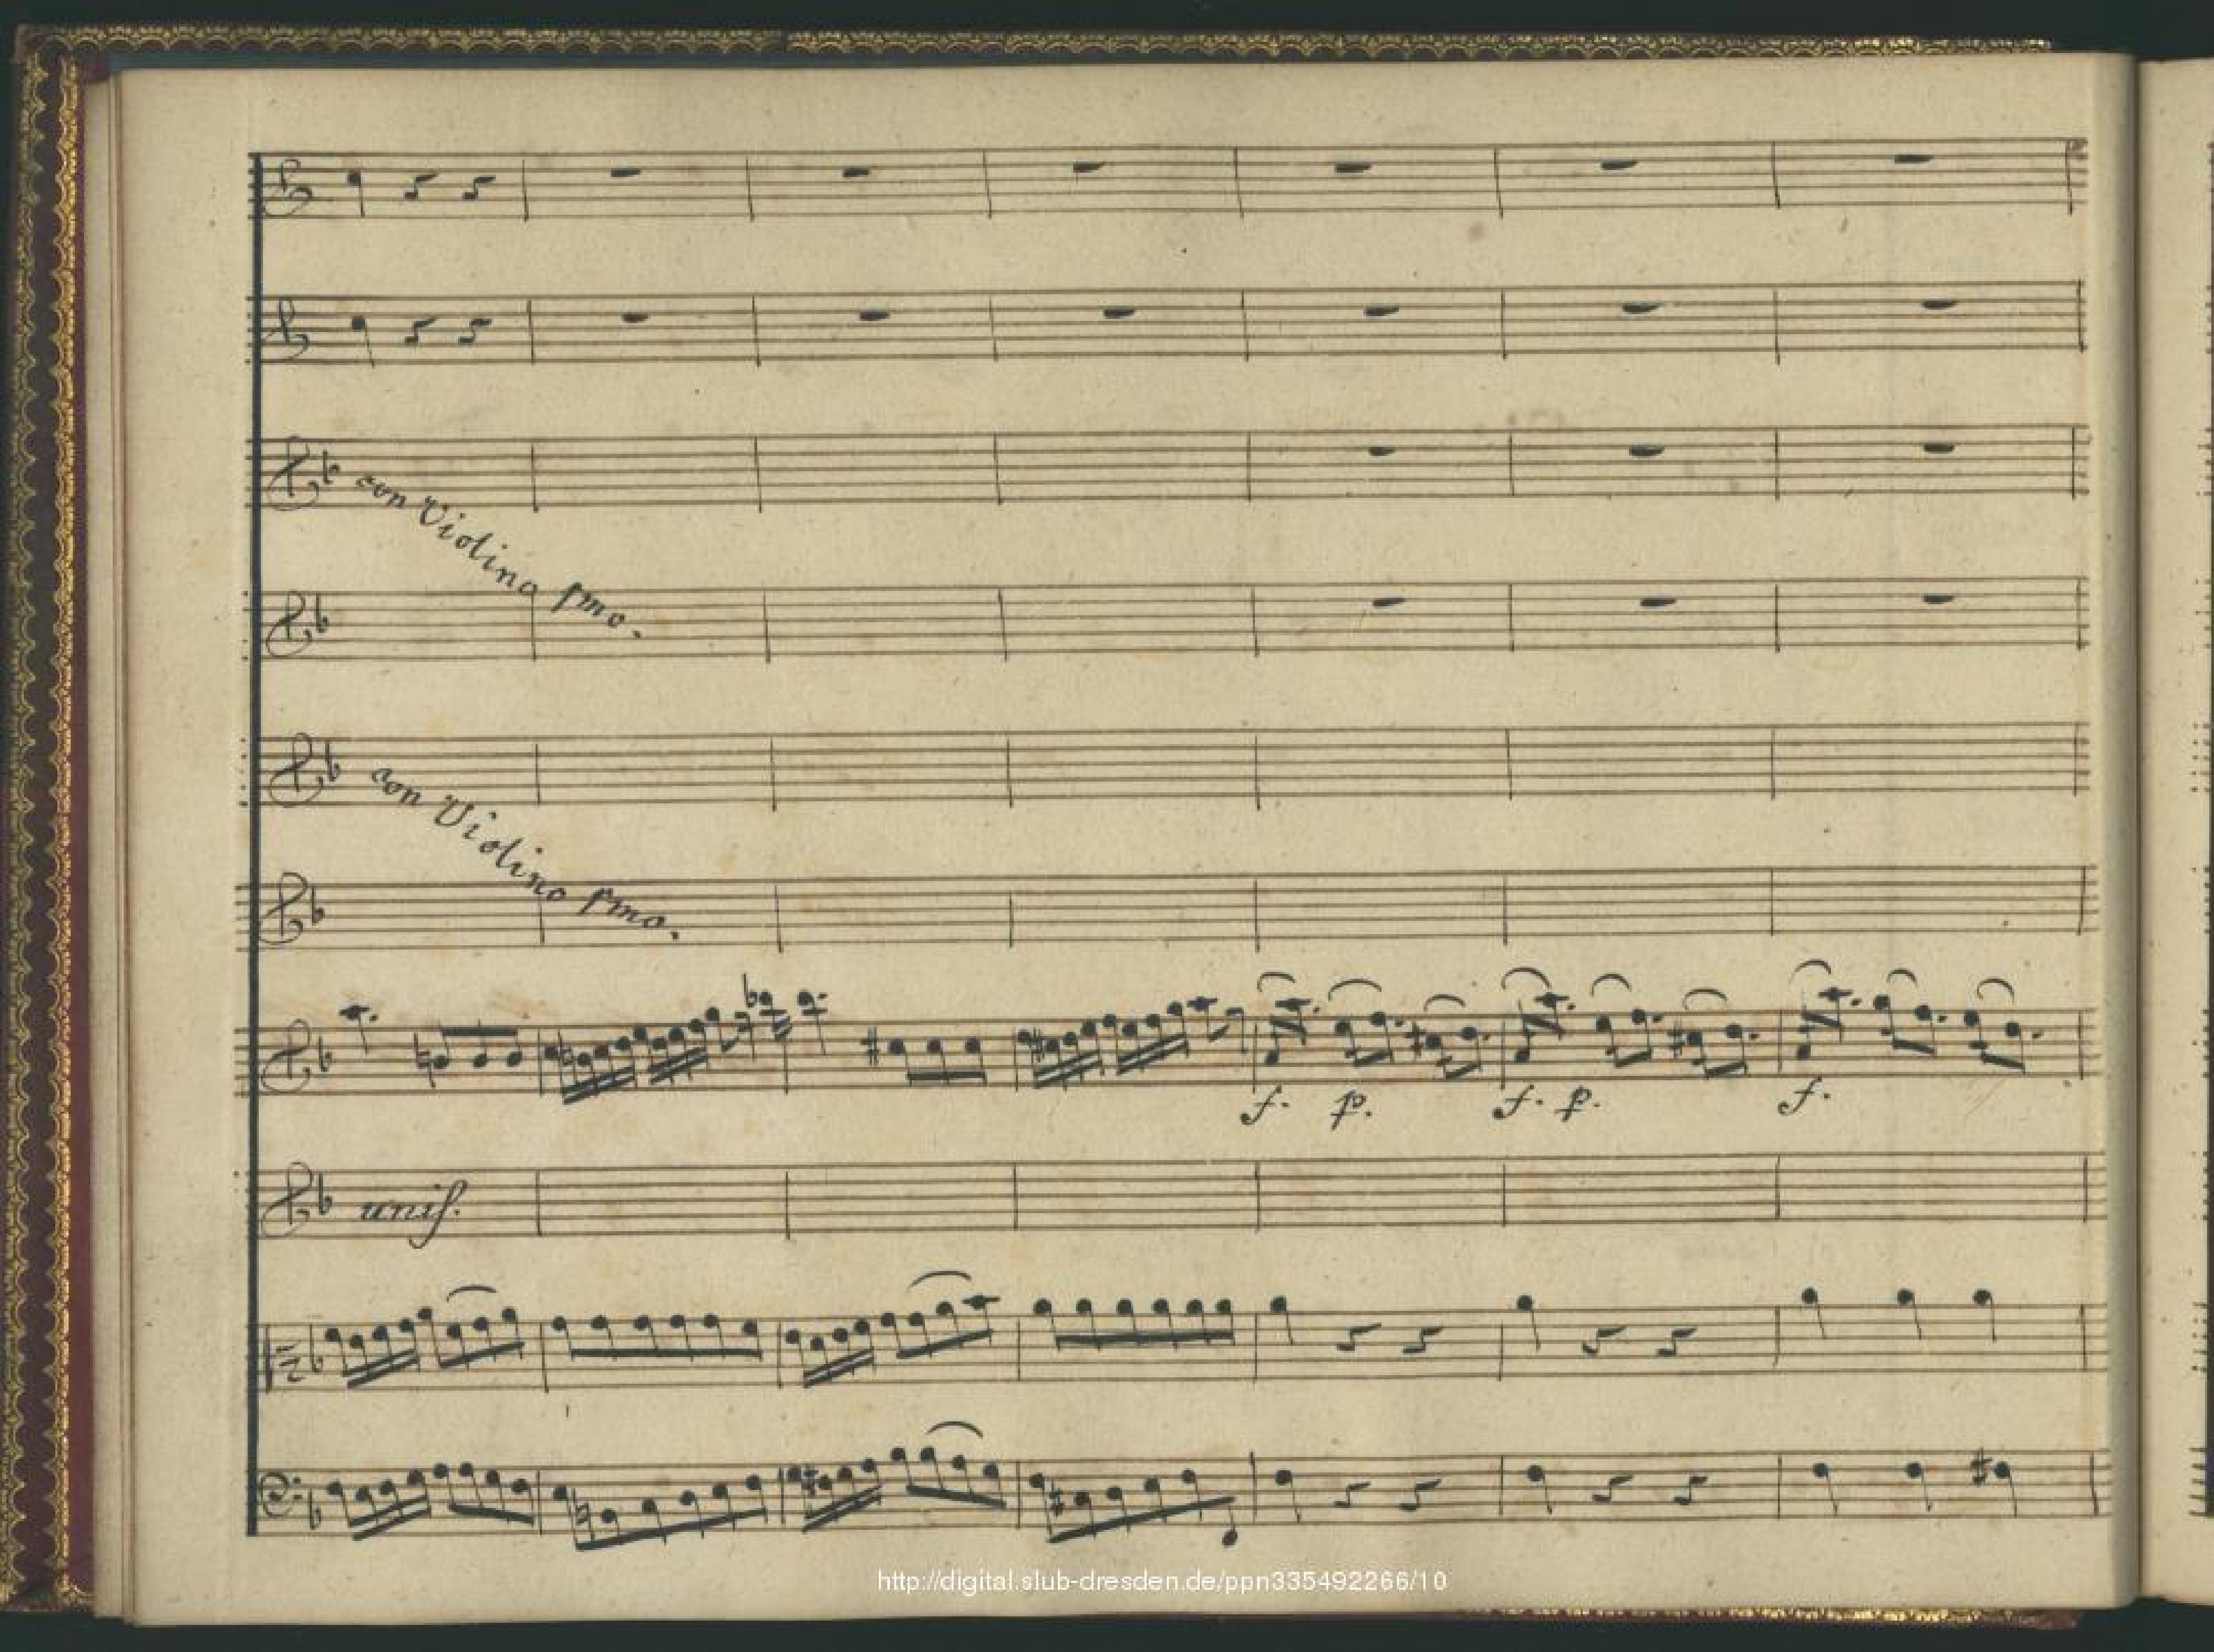 con Violino pmo.
con Violino pmo.
f. p. f. p. f.
unis.
http://digital.slub-dresden.de/ppn335492266/10